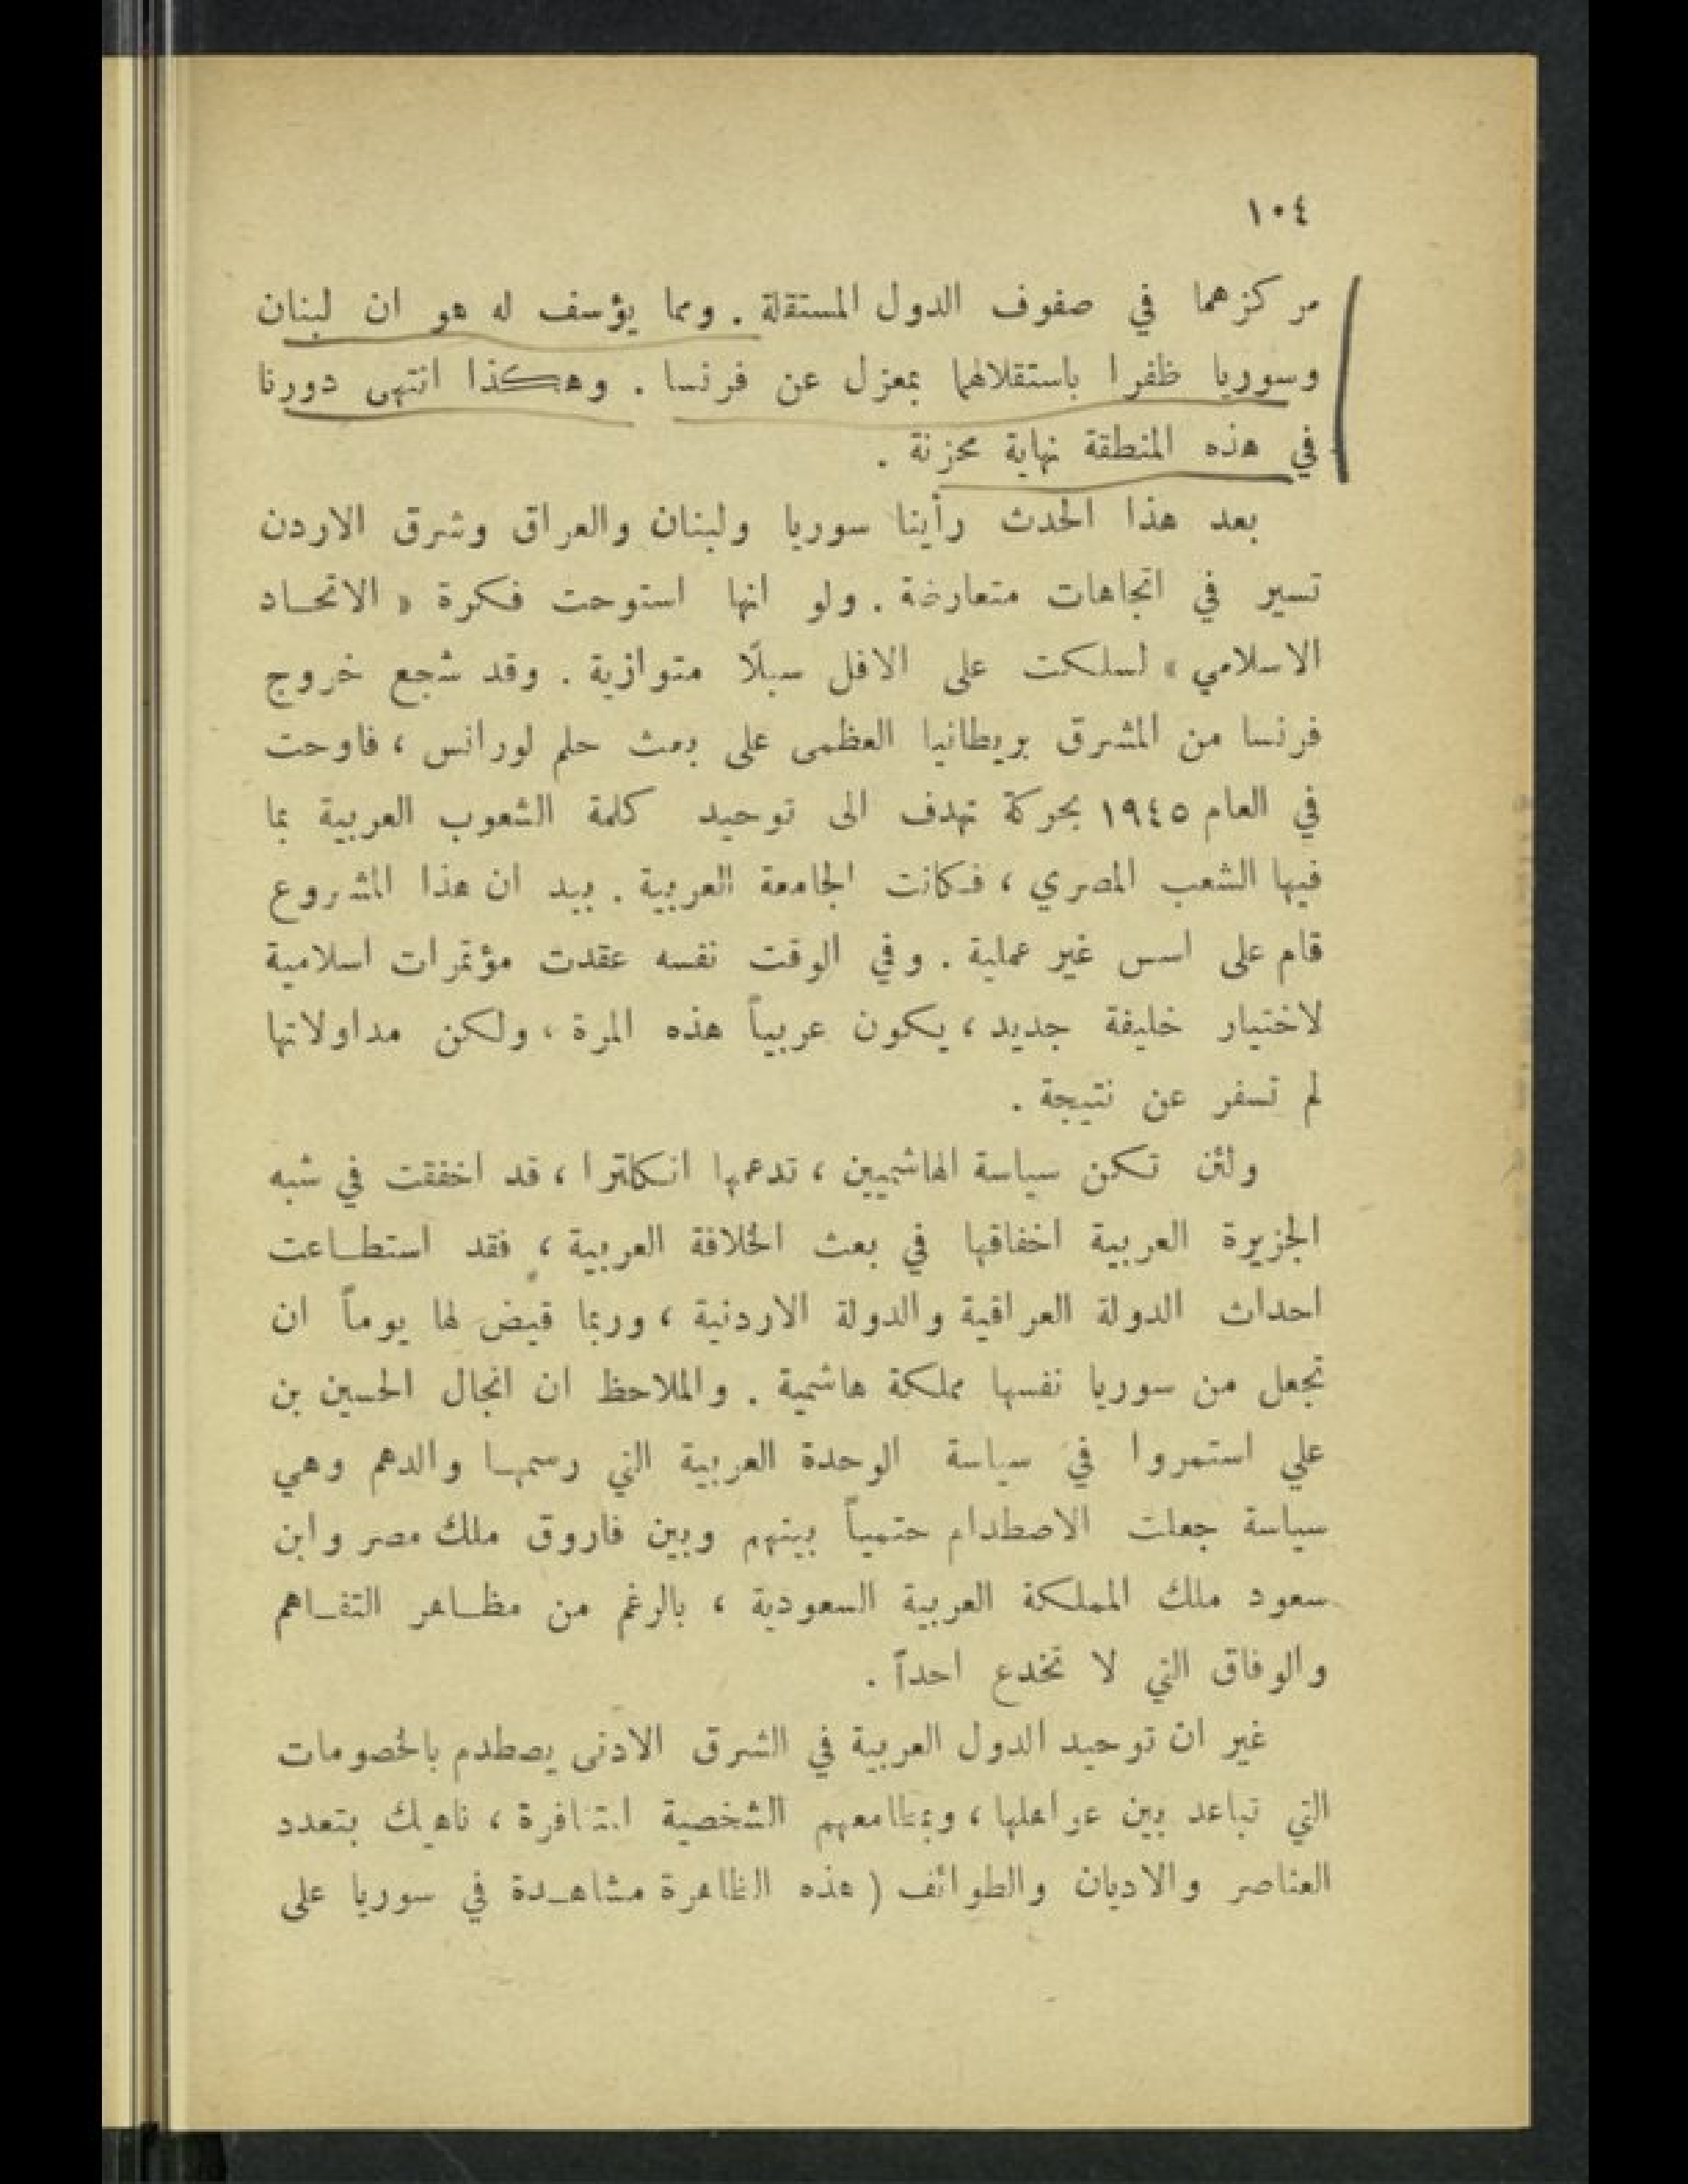 ١٠٤
مركزهما في صفوف الدول المستقلة . ومما يؤسف له هو ان لبنان
وسوريا ظفرا باستقلالهما بمعزل عن فرنسا . وهكذا انتهى دورنا
في هذه المنطقة نهاية محزنة .
بعد هذا الحدث رأينا سوريا ولبنان والعراق وشرق الاردن
تسير في اتجاهات متعارضة . ولو انها استوحت فكرة « الاتحاد
الاسلامي » لسلكت على الاقل سبلًا متوازية . وقد شجع خروج
فرنسا من المشرق بريطانيا العظمى على بعث حلم لورانس ، فاوحت
في العام ١٩٤٥ بحركة تهدف الى توحيد كلمة الشعوب العربية بما
فيها الشعب المصري ، فكانت الجامعة العربية . بيد ان هذا المشروع
قام على اسس غير عملية . وفي الوقت نفسه عقدت مؤتمرات اسلامية
لاختيار خليفة جديد ، يكون عربياً هذه المرة ، ولكن مداولاتها
لم تسفر عن نتيجة .
ولئن تكن سياسة الهاشميين ، تدعمها انكلترا ، قد اخفقت في شبه
الجزيرة العربية اخفاقها في بعث الخلافة العربية ، فقد استطاعت
احداث الدولة العراقية والدولة الاردنية ، وربما قيض لها يوماً ان
تجعل من سوريا نفسها مملكة هاشمية . والملاحظ ان انجال الحسين بن
علي استمروا في سياسة الوحدة العربية التي رسمها والدهم وهي
سياسة جعلت الاصطدام حتمياً بينهم وبين فاروق ملك مصر وابن
سعود ملك المملكة العربية السعودية ، بالرغم من مظاهر التفاهم
والوفاق التي لا تخدع احداً .
غير ان توحيد الدول العربية في الشرق الادنى يصطدم بالخصومات
التي تباعد بين عواهلها ، وبمطامعهم الشخصية المتنافرة ، ناهيك بتعدد
العناصر والاديان والطوائف ( هذه الظاهرة مشاهدة في سوريا على